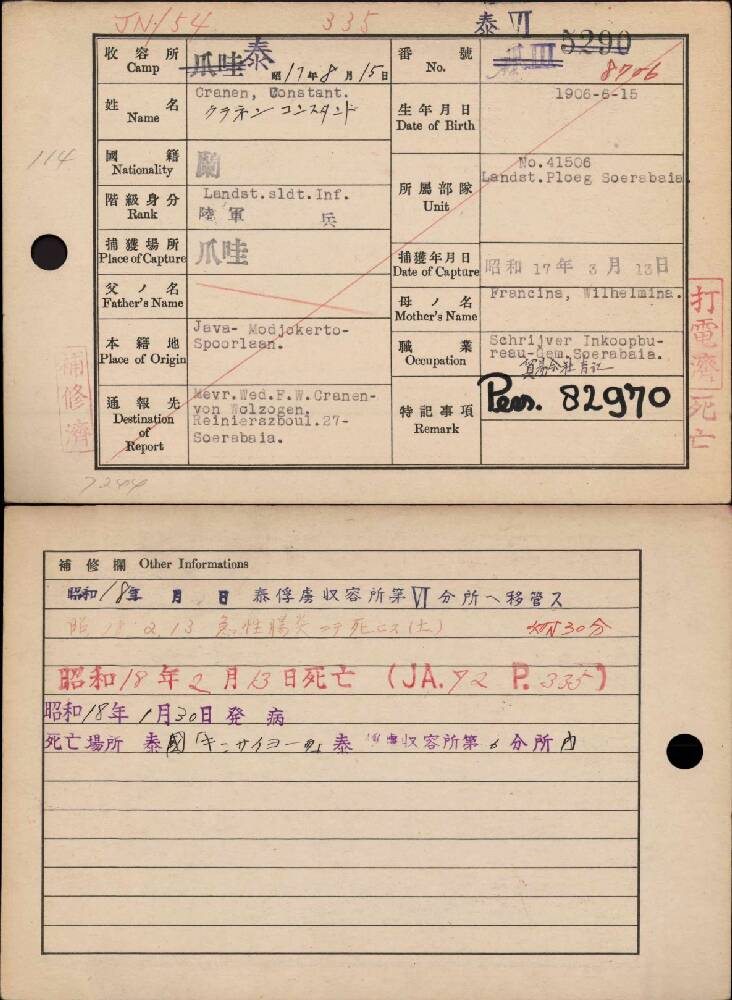 JN/154 335 泰 VI
收容所 Camp 爪哇 泰 昭17年8月15日
番號 No. 爪 III 5290 8706
姓名 Name Cranen, Constant.
クラネン コンスタント
生年月日 Date of Birth 1906-6-15
114
國籍 Nationality 蘭
所屬部隊 Unit No.41506
Landst.Ploeg Soerabaia.
階級身分 Rank Landst.sldt.Inf.
陸軍 兵
捕獲場所 Place of Capture 爪哇
捕獲年月日 Date of Capture 昭和17年3月13日
父ノ名 Father's Name
母ノ名 Mother's Name Francina, Wilhelmina.
本籍地 Place of Origin Java- Modjokerto-
Spoorlaan.
職業 Occupation Schrijver Inkoopbu-
reau-Gem.Soerabaia.
通報先 Destination of Report Mevr.Wed.F.W.Cranen-
von Wolzogen.
Reinierszboul.27-
Soerabaia.
特記事項 Remark Pers. 82970
補修濟
打電濟 死亡
7244
補修欄 Other Informations
昭和18年 月 日 泰俘虜収容所第VI分所ヘ移管ス
昭 18 2 13 急性腸炎 ニテ死亡ス(土) 30分
昭和18年2月13日死亡 (JA.72 P.335)
昭和18年1月30日発病
死亡場所 泰國「キンサイヨーク」泰 収容所第6分所内